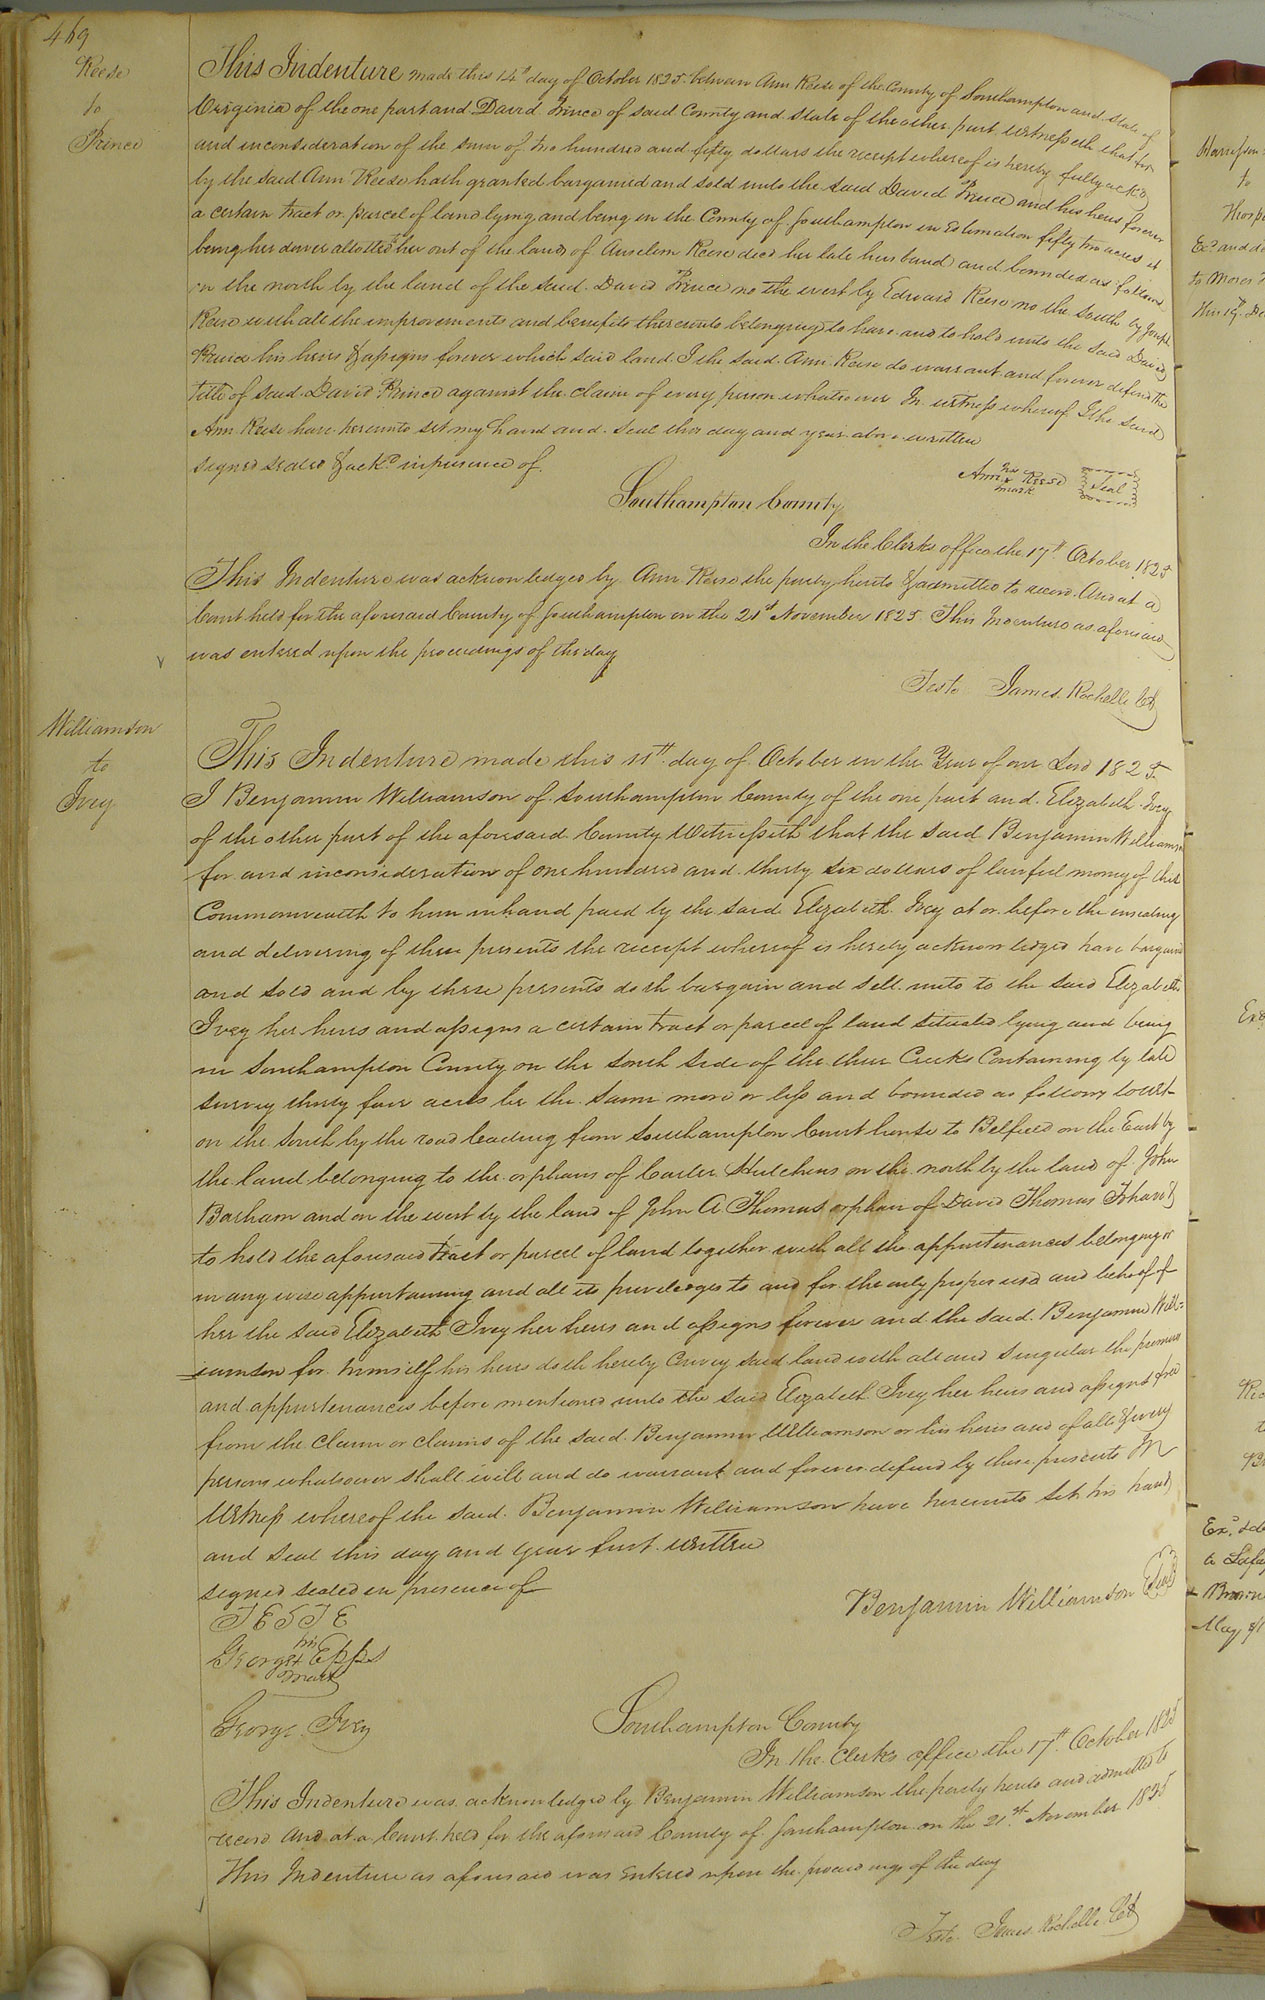 469
Reese
to
Prince
This Indenture made this 14th day of October 1825 between Ann Reese of the County of Southampton and State of
Virginia of the one part and David Prince of said County and State of the other part witnesseth that for
and inconsideration of the sum of two hundred and fifty dollars the receipt whereof is hereby fully ackd
by the said Ann Reese hath granted bargained and sold unto the said David Prince and his heirs forever
a certain tract or parcel of land lying and being in the County of Southampton in Estimation fifty two acres it
being her dower allotted her out of the land of Anselem Reese decd her late husband and bounded as follows
on the north by the land of the said David Prince no the west by Edward Reese no the South by Joseph
Reese with all the improvements and benefits thereunto belonging to have and to hold unto the said David
Prince his heirs & assigns forever which said land I the said Ann Reese do warrant and forever defend the
title of said David Prince against the claim of every person whatsoever In witness whereof I the said
Ann Reese have hereunto set my hand and Seal this day and year above written
signed sealed & ackd in presence of
Ann her x mark Reese Seal
Southampton County
In the Clerks office the 17th October 1825
This Indenture was acknowledged by Ann Reese the party hereto & admitted to record. And at a
Court held for the aforesaid County of Southampton on the 21st November 1825 This Indenture as aforesaid
was entered upon the proceedings of the day
Teste James Rochelle Clk
Williamson
to
Ivey
This Indenture made this 11th day of October in the Year of our Lord 1825
I Benjamin Williamson of Southampton County of the one part and Elizabeth Ivey
of the other part of the aforesaid County Witnesseth that the said Benjamin Williamson
for and inconsideration of one hundred and thirty six dollars of lawful money of this
Commonwealth to him inhand paid by the said Elizabeth Ivey at or before the ensealing
and delivering of these presents the receipt whereof is hereby acknowledged have bargained
and sold and by these presents doth bargain and sell unto to the said Elizabeth
Ivey her heirs and assigns a certain tract or parcel of land situated lying and being
in Southampton County on the South Side of the three Creeks Containing by late
survey thirty four acres be the same more or less and bounded as follows towit
on the South by the road leading from Southampton Court house to Belfield on the East by
the land belonging to the orphans of Carter Hutchens on the north by the land of John
Barham and on the west by the land of John A Thomas orphan of David Thomas To have &
to hold the aforesaid tract or parcel of land together with all the appurtenances belonging or
in any wise appurtaining and all its priviledges to and for the only proper use and behoof of
her the said Elizabeth Ivey her heirs and assigns forever and the said Benjamin Will=
=iamson for himself his heirs doth hereby Convey said land with all and singular the premises
and appurtenances before mentioned unto the said Elizabeth Ivey her heirs and assigns free
from the claim or claims of the said Benjamin Williamson or his heirs and of all & every
persons whatsoever shall will and do warrant and forever defend by these presents In
Witness whereof the said Benjamin Williamson have hereunto set his hand
and Seal this day and year first written
signed sealed in presence of
Benjamin Williamson Seal
TESTE
George his x mark Epps
George Ivey
Southampton County
In the Clerks office the 17th October 1825
This Indenture was acknowledged by Benjamin Williamson the party hereto and admitted to
record And at a Court held for the aforesaid County of Southampton on the 21st November 1825
This Indenture as aforesaid was entered upon the proceedings of the day
Teste James Rochelle Clk